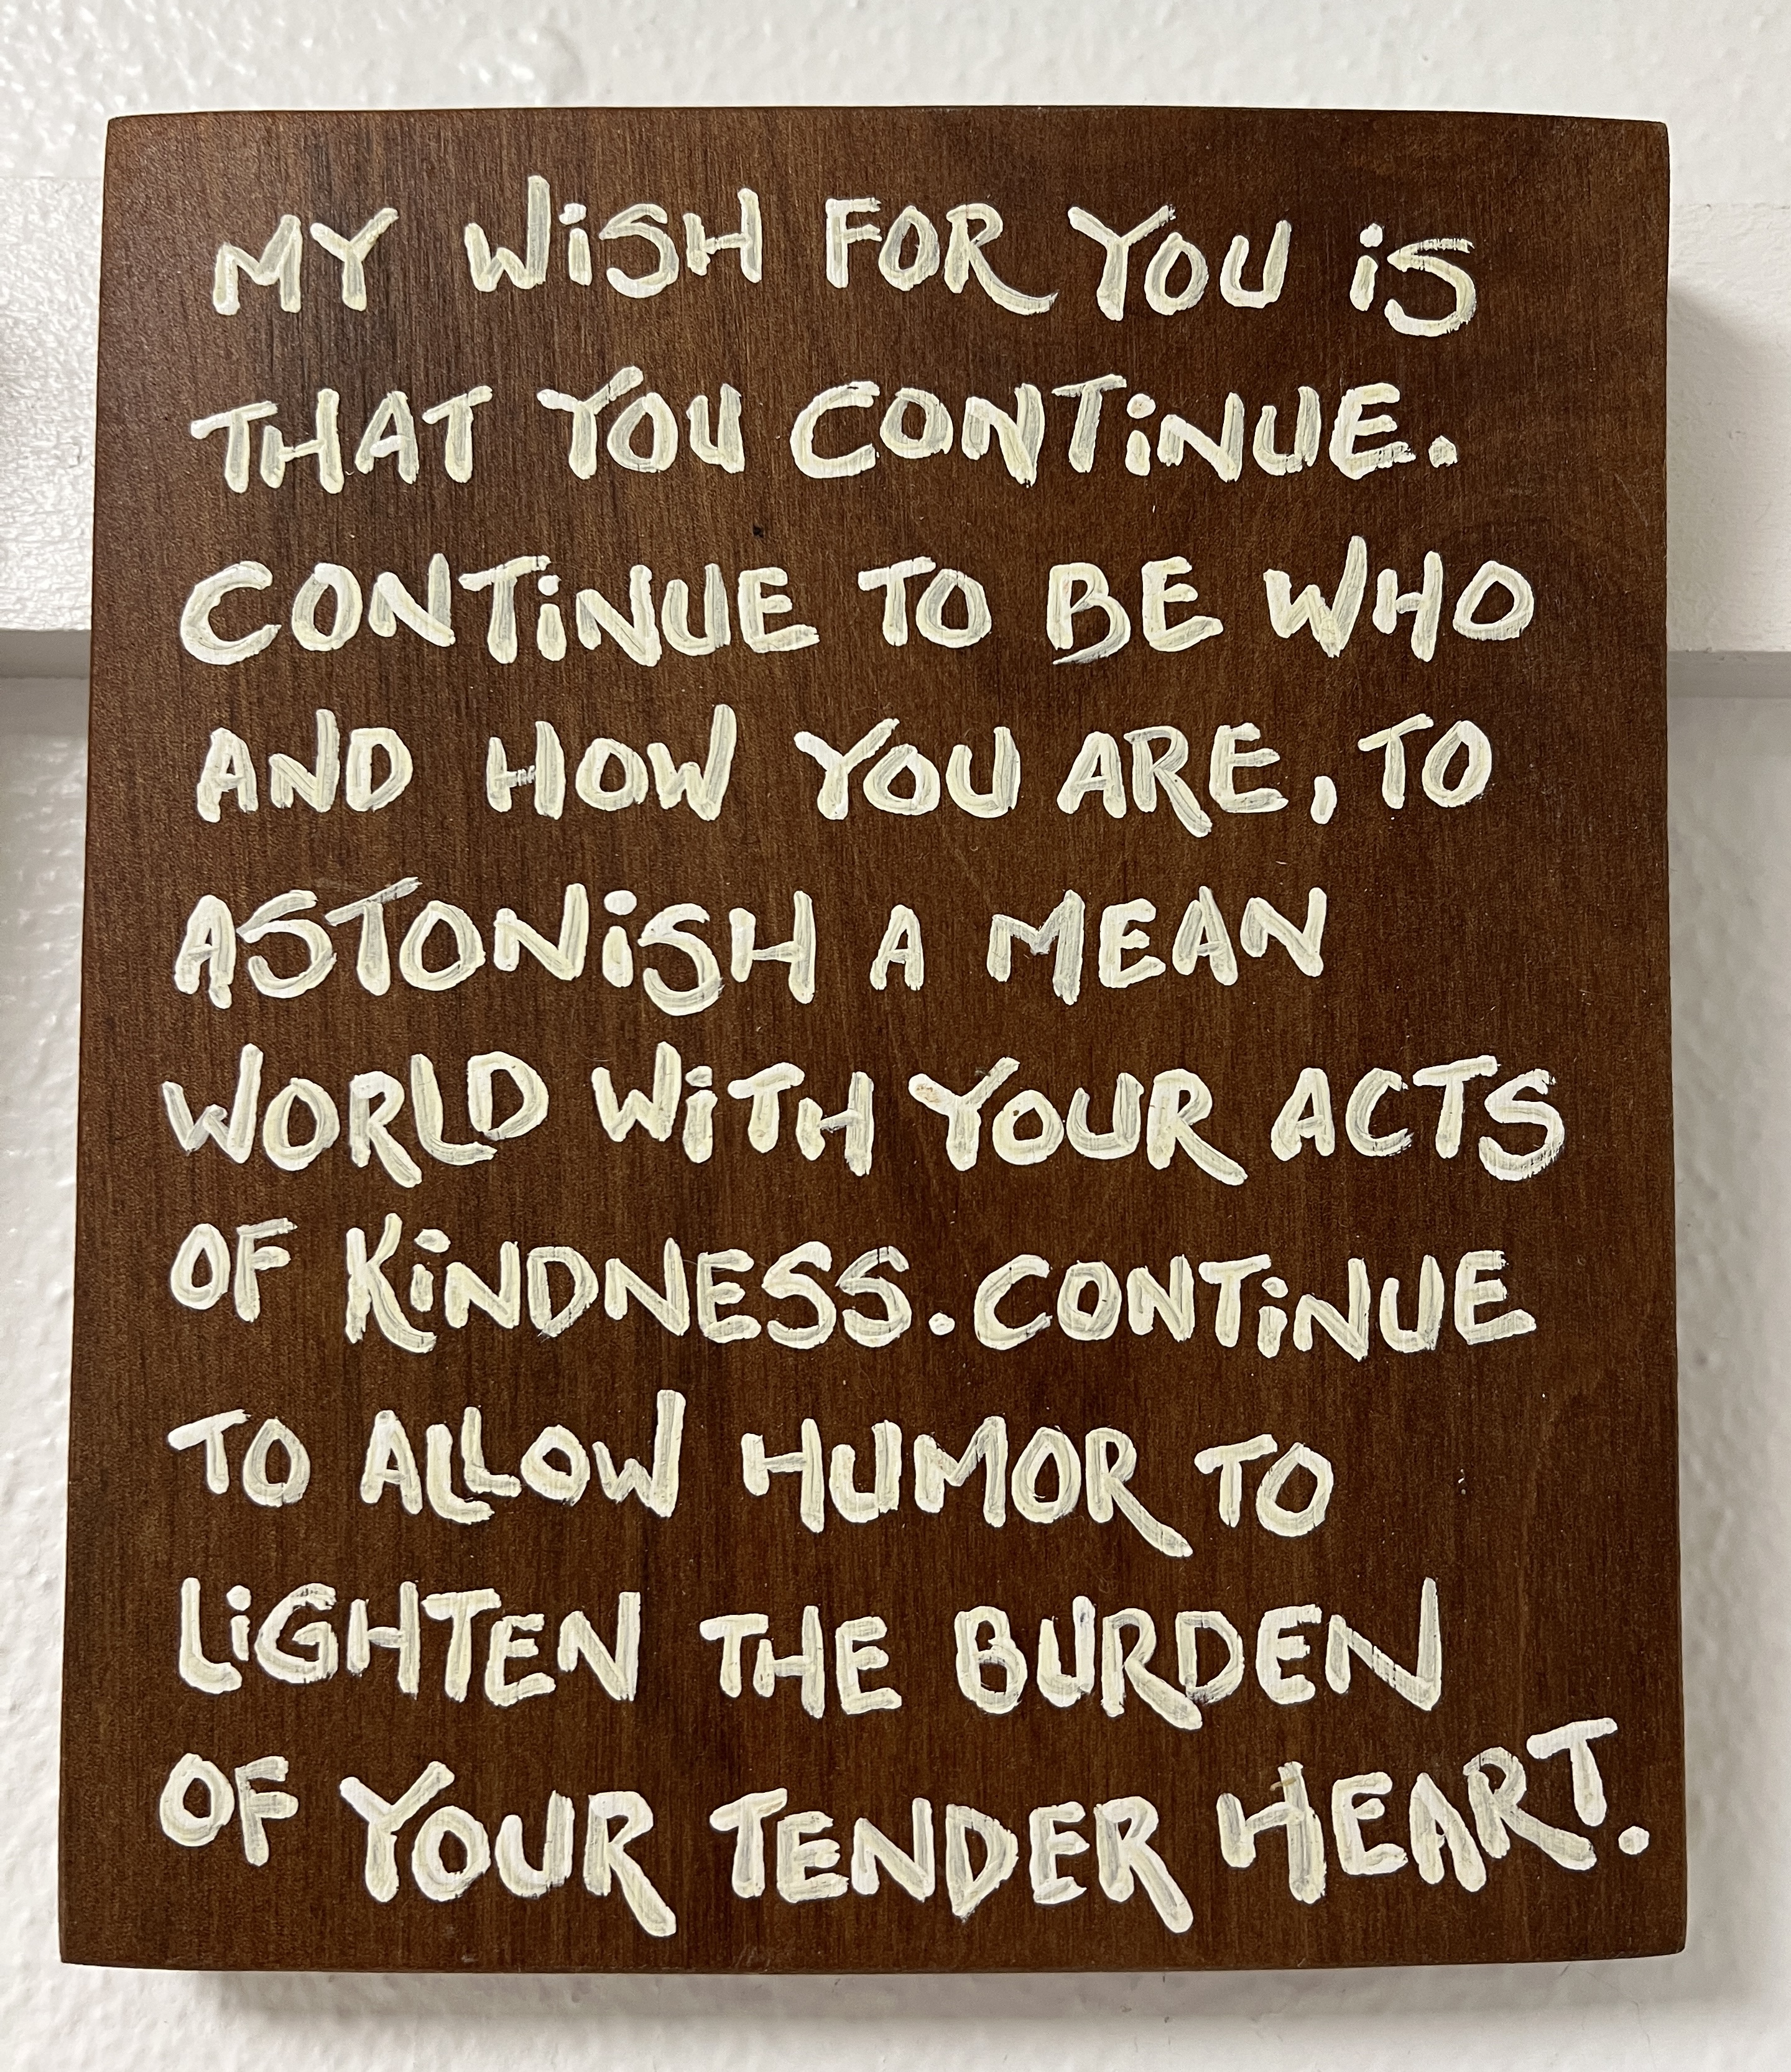 MY WiSH FOR YOU iS
THAT YOU CONTiNUE.
CONTiNUE TO BE WHO
AND HOW YOU ARE, TO
ASTONiSH A MEAN
WORLD WiTH YOUR ACTS
OF KiNDNESS. CONTiNUE
TO ALLOW HUMOR TO
LiGHTEN THE BURDEN
OF YOUR TENDER HEART.